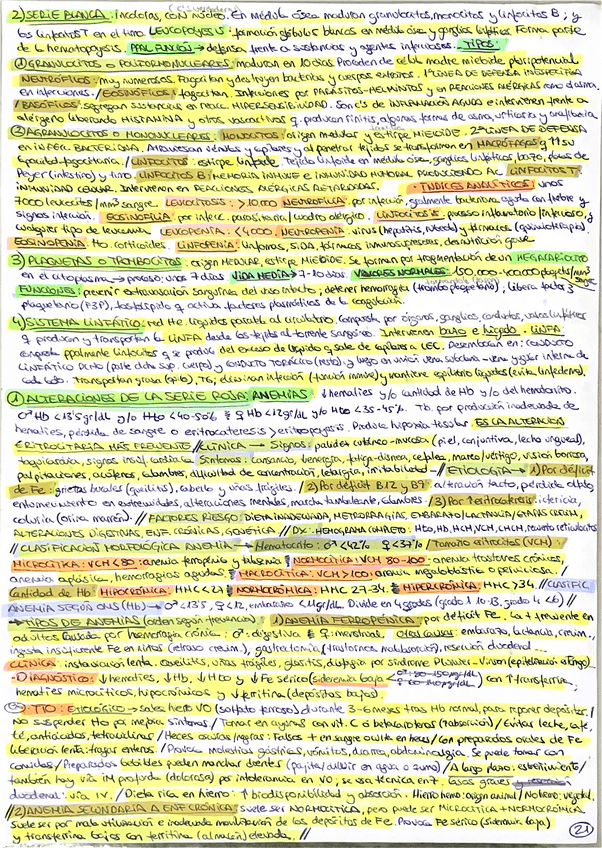 2) SERIE BLANCA: incoloras, con núcleo. En médula ósea maduran granulocitos, monocitos y linfocitos B; y
los linfocitos T en el timo. LEUCOPOYESIS: formación glóbulos blancos en médula ósea y ganglios linfáticos. Forma parte
de la hematopoyesis. PPAL FUNCIÓN → defensa frente a sustancias y agentes infecciosos. TIPOS:
① GRANULOCITOS o POLIMORFONUCLEARES: maduran en 10 días. Proceden de célula madre mieloide pluripotencial.
NEUTRÓFILOS: muy numerosos. Fagocitan y destruyen bacterias y cuerpos extraños. 1ª LÍNEA DE DEFENSA INESPECÍFICA
en infecciones. / EOSINÓFILOS: fagocitan. Infecciones por PARÁSITOS-HELMINTOS y en REACCIONES ALÉRGICAS como asma.
/ BASÓFILOS: segregan sustancias de reacc. HIPERSENSIBILIDAD. Son cs de INFLAMACIÓN AGUDA e intervienen frente a
alérgeno liberando HISTAMINA y otros vasoactivos q producen rinitis, algunas formas de asma, urticaria y anafilaxia.
② AGRANULOCITOS o MONONUCLEARES: MONOCITOS: origen medular y estirpe MIELOIDE. 2ª LÍNEA DE DEFENSA
en INFEC. BACTERIANA. Atraviesan vénulas y capilares y al penetrar tejidos se transforman en MACRÓFAGOS q ↑↑ su
capacidad fagocitaria. / LINFOCITOS: estirpe linfoide. Tejido linfoide en médula ósea, ganglios linfáticos, bazo, placas de
Peyer (intestino) y timo. LINFOCITOS B: MEMORIA INMUNE e INMUNIDAD HUMORAL PRODUCIENDO AC. LINFOCITOS T:
INMUNIDAD CELULAR. Intervienen en REACCIONES ALÉRGICAS RETARDADAS. · ÍNDICES ANALÍTICOS: unos
7000 leucocitos/mm³ sangre. LEUCOCITOSIS: >10.000 NEUTROFILIA: por infección, gralmente bacteriana aguda con fiebre y
signos infección. EOSINOFILIA: por infecc. parasitaria/cuadro alérgico. LINFOCITOSIS: proceso inflamatorio/infeccioso, y
cualquier tipo de leucemia. LEUCOPENIA: <4.000 NEUTROPENIA: virus (hepatitis, rubeola) y fármacos (quimioterapia).
EOSINOPENIA: tto. corticoides. LINFOPENIA: linfomas, SIDA, fármacos inmunosupresores, desnutrición grave.
3) PLAQUETAS o TROMBOCITOS: origen MEDULAR, estirpe MIELOIDE. Se forman por fragmentación de un MEGACARIOCITO
en el citoplasma → proceso: unos 7 días. VIDA MEDIA → 7-10 días. VALORES NORMALES: 150.000-400.000 plaquetas/mm³ sangre
FUNCIONES: prevenir extravasación sanguínea del vaso intacto; detener hemorragia (trombo plaquetario), libera factor 3
plaquetario (F3P), fosfolípido q activa factores plasmáticos de la coagulación.
4) SISTEMA LINFÁTICO: red tte. líquidos paralela al circulatorio compuesta por órganos, ganglios, conductos, vasos linfáticos
q producen y transportan la LINFA desde los tejidos al torrente sanguíneo. Intervienen bazo e hígado. LINFA:
compuesta ppalmente linfocitos q se produce del exceso de líquido q sale de capilares a LEC. Desembocan en: CONDUCTO
LINFÁTICO Dcho (parte dcha sup. cuerpo) y CONDUCTO TORÁCICO (resto), y luego en unión vena subclavia-vena yugular interna de
cada lado. Transportan grasa (quilo), TG; eliminan infección (función inmune) y mantiene equilibrio líquidos (evita linfedema).
① ALTERACIONES DE LA SERIE ROJA: ANEMIAS ↓ hematíes y/o cantidad de Hb y/o del hematocrito.
♂ Hb <13'5gr/dl y/o Hto <40-50% ≠ ♀ Hb <12gr/dl y/o Hto <35-45%. Tb. por producción inadecuada de
hematíes, pérdida de sangre o eritrocateresis > eritropoyesis. Produce hipoxia tisular. ES LA ALTERACIÓN
ERITROCITARIA MÁS FRECUENTE // CLÍNICA → Signos: palidez cutáneo-mucosa (piel, conjuntiva, lecho ungueal),
taquicardia, signos insuf. cardiaca. Síntomas: cansancio, letargia, fatiga, disnea, cefalea, mareo/vértigo, visión borrosa,
palpitaciones, acúfenos, calambres, dificultad de concentración, letargia, irritabilidad — // ETIOLOGÍA → 1) Por déficit
de Fe: grietas bucales (queilitis), cabello y uñas frágiles. / 2) Por déficit B12 y B9: alteración tacto, pérdida olfato,
entumecimiento en extremidades, alteraciones mentales, marcha tambaleante, calambres / 3) Por ↑ eritrocateresis: ictericia,
coluria (orina marrón). // FACTORES RIESGO: DIETA INADECUADA, METRORRAGIAS, EMBARAZO/LACTANCIA/ETAPAS CRECIM.,
ALTERACIONES DIGESTIVAS, ENF. CRÓNICAS, GENÉTICA // DX: HEMOGRAMA COMPLETO: Hto, Hb, HCM, VCM, CHCM, recuento reticulocitos
// CLASIFICACIÓN MORFOLÓGICA ANEMIA → Hematocrito: ♂ <42% ♀ <37% / Tamaño eritrocitos (VCM):
MICROCÍTICA: VCM <80: anemia ferropénica y talasemia ≠ NORMOCÍTICA: VCM 80-100: anemia trastornos crónicos,
anemia aplásica, hemorragias agudas. ≠ MACROCÍTICA: VCM >100: anemia megaloblástica o perniciosa. //
Cantidad de Hb HIPOCRÓMICA: HHC <27 ≠ NORMOCRÓMICA: HHC 27-34. ≠ HIPERCRÓMICA: HHC >34. // CLASIFIC.
ANEMIA SEGÚN OMS (Hb) → ♂ <13'5, ♀ <12, embarazo <11gr/dL. Divide en 4 grados (grado 1 10-13, grado 4 <6) //
→ TIPOS DE ANEMIAS (orden según frecuencia) 1) ANEMIA FERROPÉNICA: por déficit Fe. La + frecuente en
adultos. Causada por hemorragia crónica: ♂: digestivo ≠ ♀: menstruos. Otras causas: embarazo, lactancia, crecim.,
ingesta insuficiente Fe en niños (retraso crecim.), gastrectomía (trastornos malabsorción), resección duodenal...
CLÍNICA: instauración lenta. Queilitis, uñas frágiles, glositis, disfagia por síndrome Plummer-Vinson (epitelización esófago).
· DIAGNÓSTICO: ↓ hematíes, ↓Hb, ↓Hto y ↓ Fe sérico (sideremia baja <♂: 80-150µg/dL ♀: 60-140µg/dL) con ↑ transferrina,
hematíes microcíticos, hipocrómicos y ↓ ferritina (depósitos bajos).
TTO: ETIOLÓGICO → sales hierro VO (sulfato ferroso) durante 3-6 meses tras Hb normal, para reponer depósitos. /
No suspender tto pq mejora síntomas / Tomar en ayunas con vit. C o betacarotenos (↑absorción) / Evitar leche, café,
té, antiácidos, tetraciclinas / Heces oscuras/negras: Falsos + en sangre oculta en heces / Con preparados orales de Fe
liberación lenta: tragar enteros. / Provoca molestias gástricas, vómitos, diarrea, abdominalgia. Se puede tomar con
comidas / Preparados bebibles pueden manchar dientes (pajita/diluir en agua o zumo) / A largo plazo: estreñimiento/
también hay vía IM profunda (dolorosa) por intolerancia en VO, se usa técnica en Z. Casos graves
duodenal: vía IV. / Dieta rica en hierro: ↑ biodisponibilidad y absorción. Hierro hemo: origen animal / No hemo: vegetal.
// 2) ANEMIA SECUNDARIA A ENF. CRÓNICA: suele ser NORMOCÍTICA, pero puede ser MICROCÍTICA + NORMOCRÓMICA.
Suele ser por mala utilización e inadecuada movilización de los depósitos de Fe. Provoca Fe sérico (sideremia baja)
y transferrina bajos con ferritina (almacén) elevada. //
21